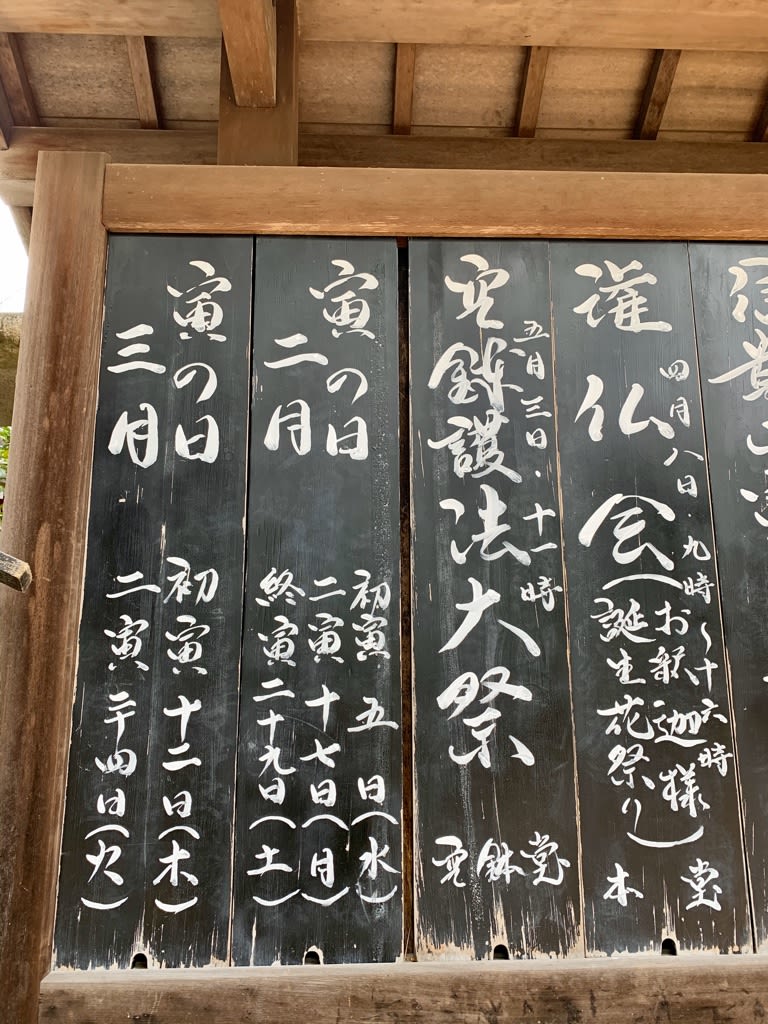 信貴
四月八日・九時〜十六時
潅仏会(お釈迦様
誕生花祭り)
本堂
五月三日・十一時
空鉢護法大祭
空鉢堂
寅の日
二月
初寅 五日(水)
二寅 十七日(月)
終寅 二十九日(土)
寅の日
三月
初寅 十二日(木)
二寅 二十四日(火)